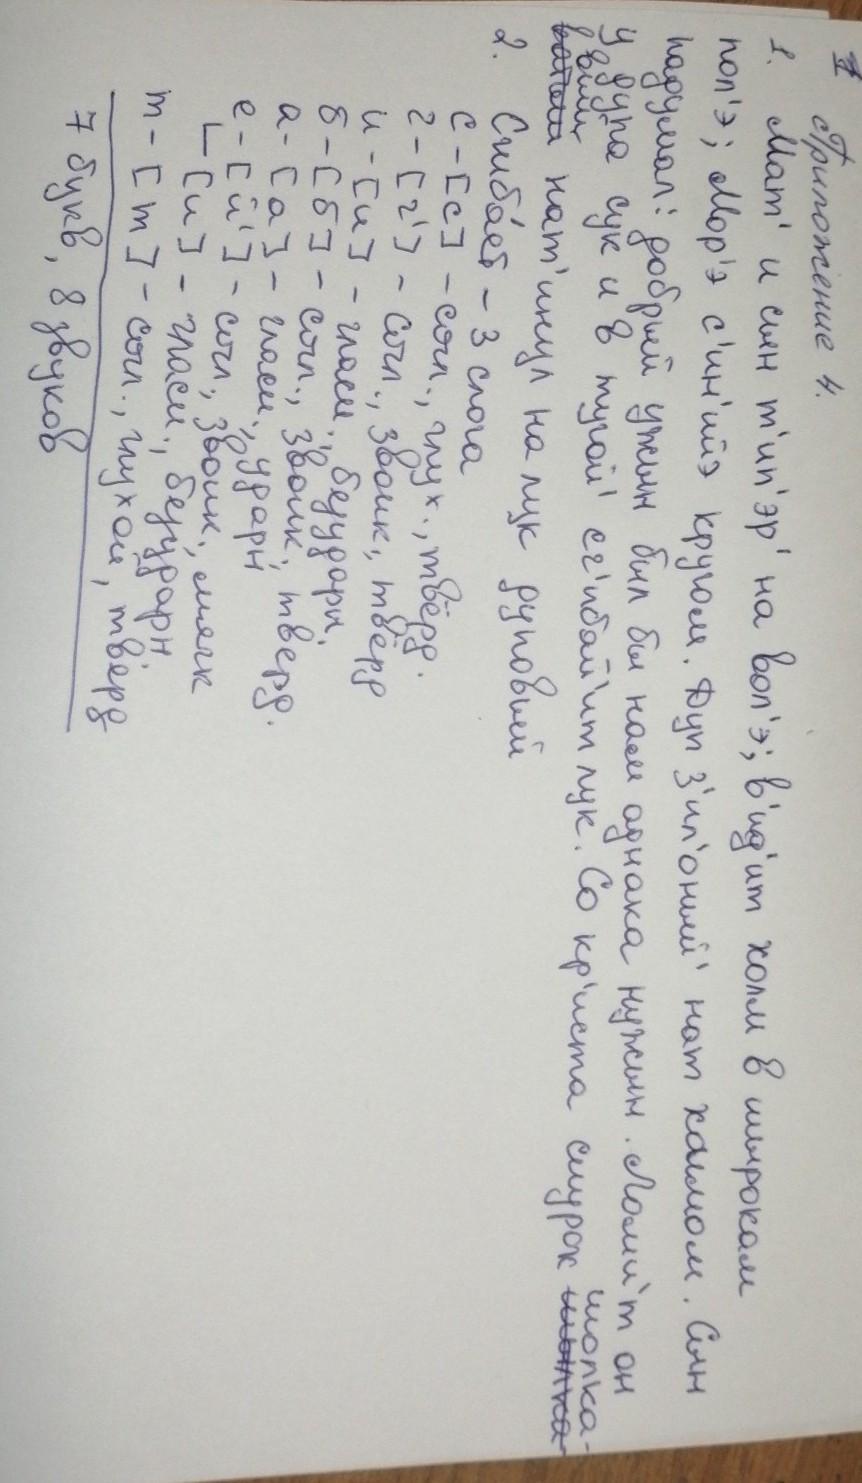 Приложение 4.
1. Мат' и сын т'ип'эр' на вол'э; в'ид'ит холм в шырокам
пол'э; Мор'э с'ин'ийэ кругом. Дуп з'ил'оный' нат халмом. Сын
падумал: добрый ужын был бы нам однака нужын. Ломи'т он
у дупа сук и в тугой' сг'ибай'ит лук. Со кр'иста снурок шолка-
вый нат'инул на лук дуповый
2. Сгиба́ет – 3 слога
с – [с] – согл., глух., твёрд.
г – [г'] – согл., звонк., твёрд
и – [и] – гласн., безударн.
б – [б] – согл., звонк., твёрд.
а – [а] – гласн., ударн
е – [й'] – согл, звонк., мягк
[и] – гласн., безударн
т – [т] – согл., глухой, твёрд
7 букв, 8 звуков